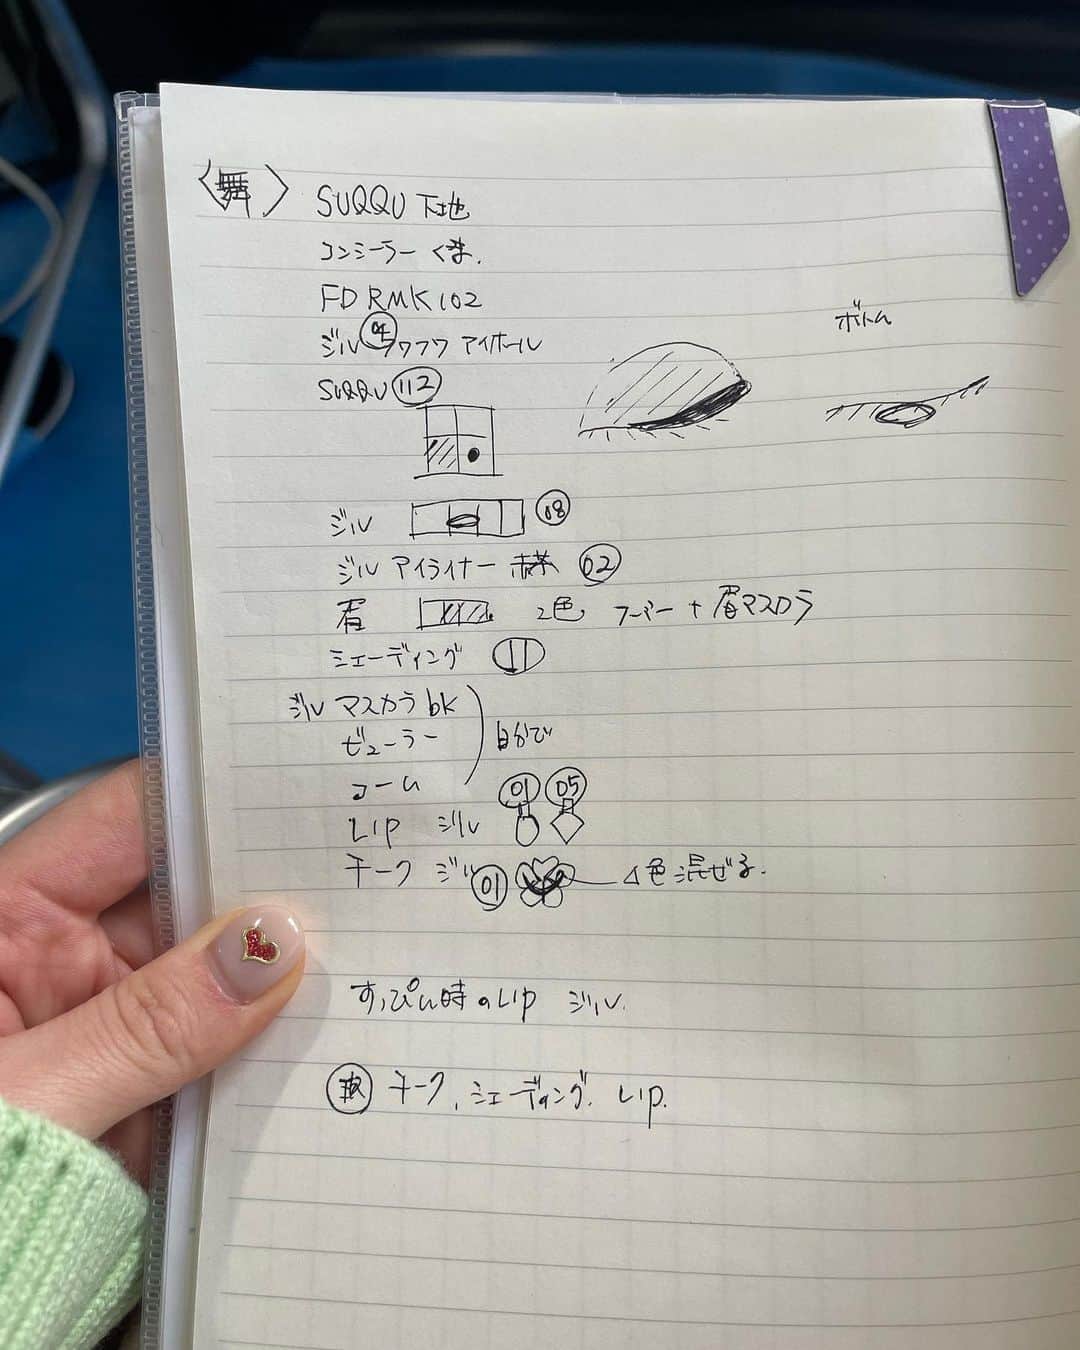 〈舞〉 SUQQU 下地
コンシーラー くま.
FD RMK 102
ジル 04 フワフワ アイホール
ボトム
SUQQU 112
ジル 08
ジル アイライナー 赤茶 02
眉 2色 + 眉マスカラ
シェーディング
ジル マスカラ bk
ビューラー 自分で
コーム
01 05
Lip ジル
チーク ジル 01 4色混ぜる.
すっぴん時のLip ジル.
チーク, シェーディング. Lip.